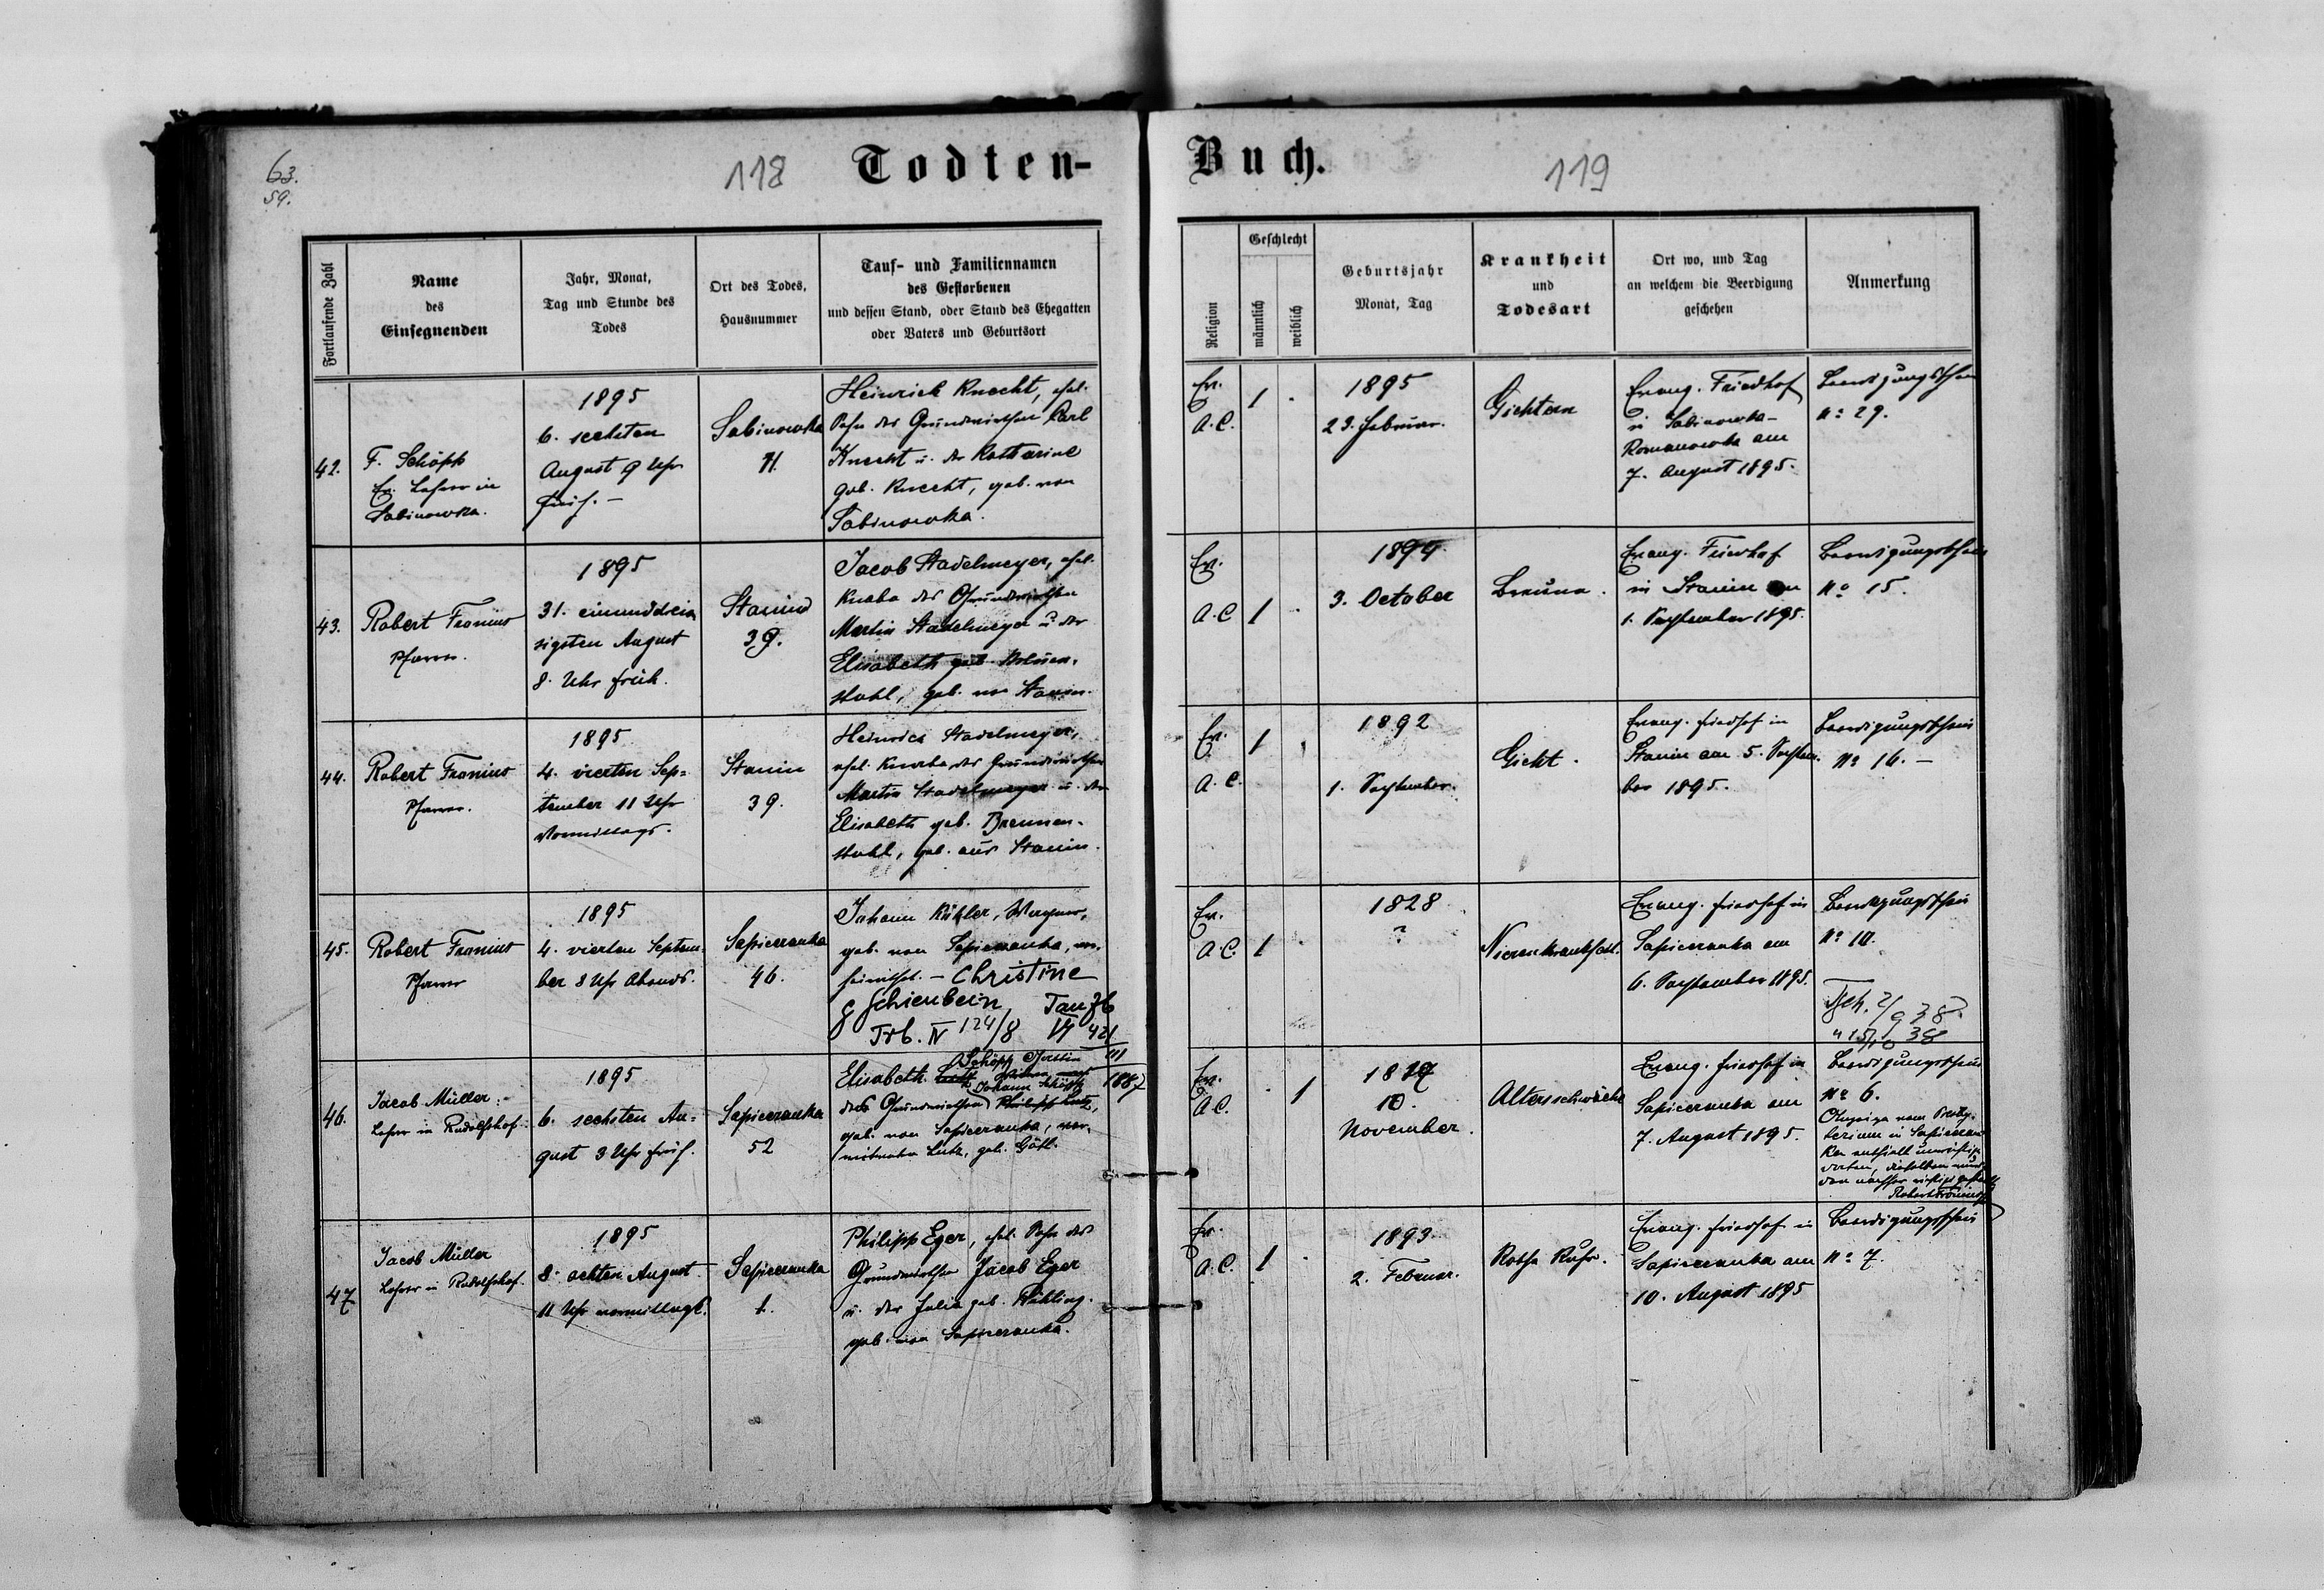 63.
59.
118
Todten-
Buch.
119
Fortlaufende Zahl
Name
des
Einsegnenden
Jahr, Monat,
Tag und Stunde des
Todes
Ort des Todes,
Hausnummer
Tauf- und Familiennamen
des Gestorbenen
und dessen Stand, oder Stand des Ehegatten
oder Vaters und Geburtsort
Religion
Geschlecht
männlich
weiblich
Geburtsjahr
Monat, Tag
Krankheit
und
Todesart
Ort wo, und Tag
an welchem die Beerdigung
geschehen
Anmerkung
42.
F. Schöpp
Ev. Lehrer in
Sabinowka.
1895
6. sechsten
August 9 Uhr
früh. –
Sabinowka
11.
Heinrich Knecht, ehel.
Sohn des Grundwirthen Karl
Knecht u. der Katharine
geb. Knecht, geb. von
Sabinowka.
Ev.
A. C.
1
1895
23. Februar.
Gichtern
Evang. Friedhof
in Sabinowka-
Romanowka am
7. August 1895.
Beerdigungsschein
No 29.
43.
Robert Fronius
Pfarrer.
1895
31. einunddreis
sigsten August
8. Uhr früh.
Stanin
39.
Jacob Stadelmeyer, ehel.
Knabe des Grundwirthen
Martin Stadelmeyer u. der
Elisabeth geb.
stuhl, geb. von Stanin.
Ev.
A. C
1
1894.
3. October
Bräune.
Evang. Friedhof
in Stanin am
1. September 1895.
Beerdigungsschein
No 15.
44.
Robert Fronius
Pfarrer.
1895
4. vierten Sep-
tember 11 Uhr
Vormittags.
Stanin
39.
Heinrich Stadelmeyer,
ehel. Knabe des Grundwirthen
Martin Stadelmeyer u. der
Elisabeth geb. Brennen-
stuhl, geb. aus Stanin.
Ev.
A. C.
1
1892
1. September.
Gicht.
Evang. Friedhof in
Stanin am 5. Septem-
ber 1895.
Beerdigungsschein
No 16. –
45.
Robert Fronius
Pfarrer
1895
4. vierten Septem-
ber 8 Uhr Abends.
Sapieranka
46.
Johann Köhler, Wagner,
geb. von Sapieranka, ver-
heirathet. – Christine
g Schienbein
Trb. IV 124/8
Ev.
A. C.
1
1828
?
Nierenkrankheit.
Evang. Friedhof in
Sapieranka am
6. September 1895.
Beerdigungsschein
No 10.
46.
Jacob Müller
Lehrer in Rudolfshof.
1895
6. sechsten Au-
gust 3 Uhr früh.
Sapieranka
52
Elisabeth Schöpp
Johann Schöpp
des Grundwirthen Philipp Lutz,
geb. von Sapieranka, ver-
witwete Lutz, geb.
1887
Ev.
A. C.
1
10.
November.
Altersschwäche
Evang. Friedhof in
Sapieranka am
7. August 1895.
Beerdigungsschein
No 6.
Anzeige vom Presby-
terium in Sapieran
ka enthielt unrichtige
Daten, dieselben wur-
den nachher richtig gestellt
Robert Fronius
47
Jacob Müller
Lehrer in Rudolfshof.
1895
8. achten August
11 Uhr vormittags.
Sapieranka
1.
Philipp Eger, ehel. Sohn des
Grundwirthen Jacob Eger
u. der Julia geb.
geb. von Sapieranka.
Ev.
A. C.
1
1893.
2. Februar.
Rothe Ruhr.
Evang. Friedhof in
Sapieranka am
10. August 1895
Beerdigungsschein
No 7.